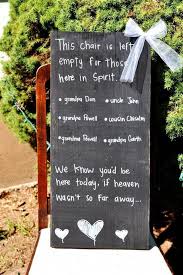 This chair is left
empty for those
here in Spirit.
• grandpa Dan • uncle John
• grandpa Powell • cousin Chisolm
• grandma Powell • grandpa Garth
We know you'd be
here today, if heaven
wasn't so far away...